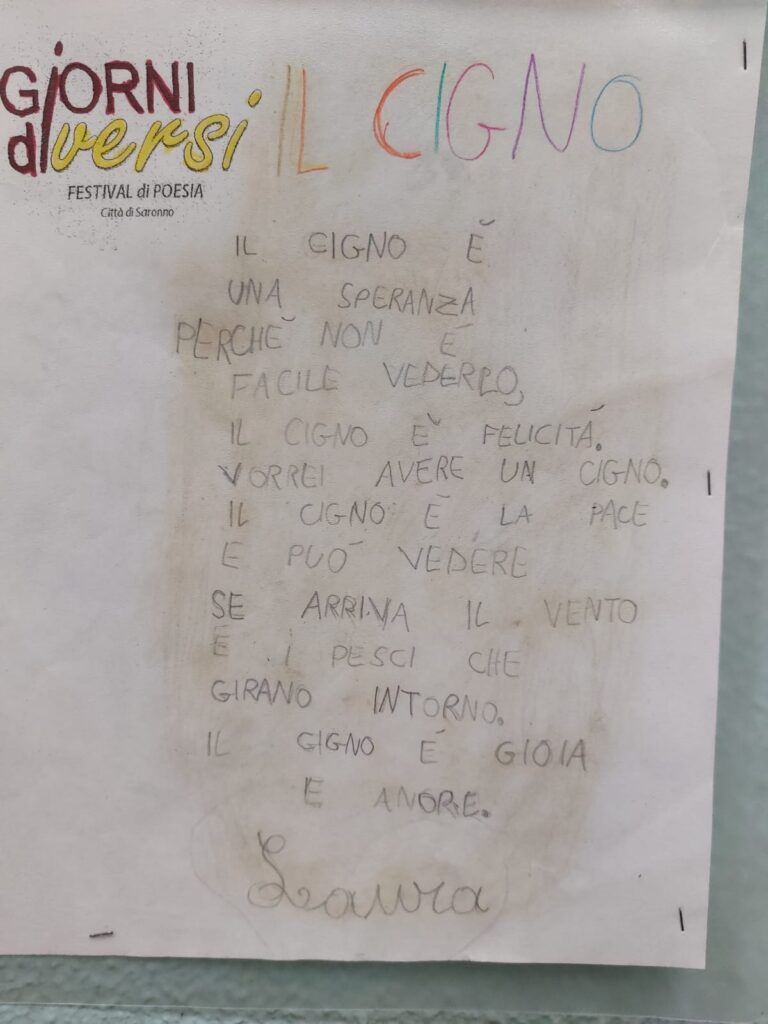 GIORNI
diversi
FESTIVAL di POESIA
Città di Saronno
IL CIGNO
IL CIGNO È
UNA SPERANZA
PERCHÈ NON É
FACILE VEDERLO,
IL CIGNO È FELICITÁ.
VORREI AVERE UN CIGNO.
IL CIGNO È LA PACE
E PUÓ VEDERE
SE ARRIVA IL VENTO
E I PESCI CHE
GIRANO INTORNO.
IL CIGNO É GIOIA
E AMORE.
Laura